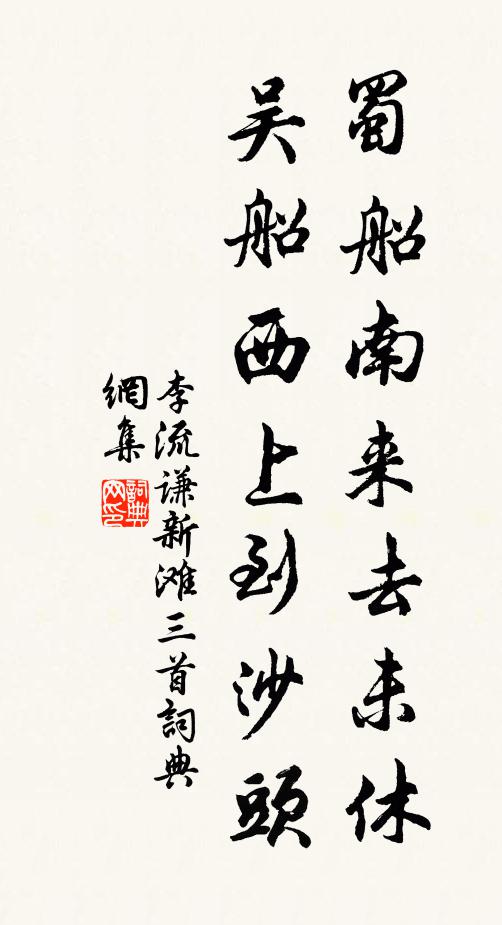 蜀船南来去未休
吴船西上到沙頭
李流谦新滩三首詞典
網集
詞典
网印